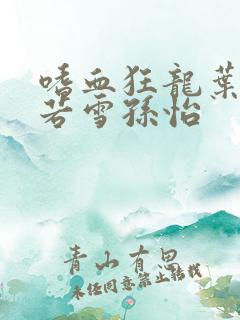 嗜血狂龍葉
若雪孫怡
青山有思
未经同意禁止转载